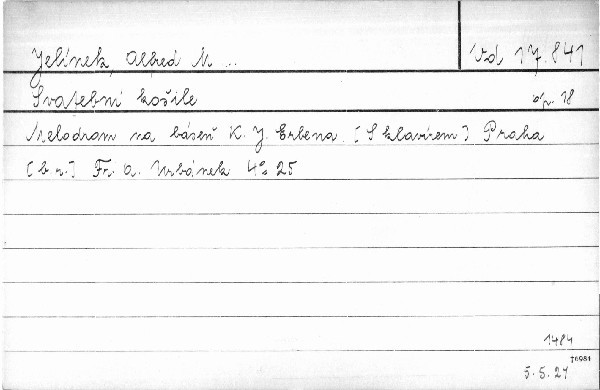 Jelínek, Alfred M ... Vd 17.841
Svatební košile op. 18
Melodram na báseň K. J. Erbena. [S klavírem] Praha
[b.r.] Fr. A. Urbánek 4° 25
1484
†6981
5.5.27